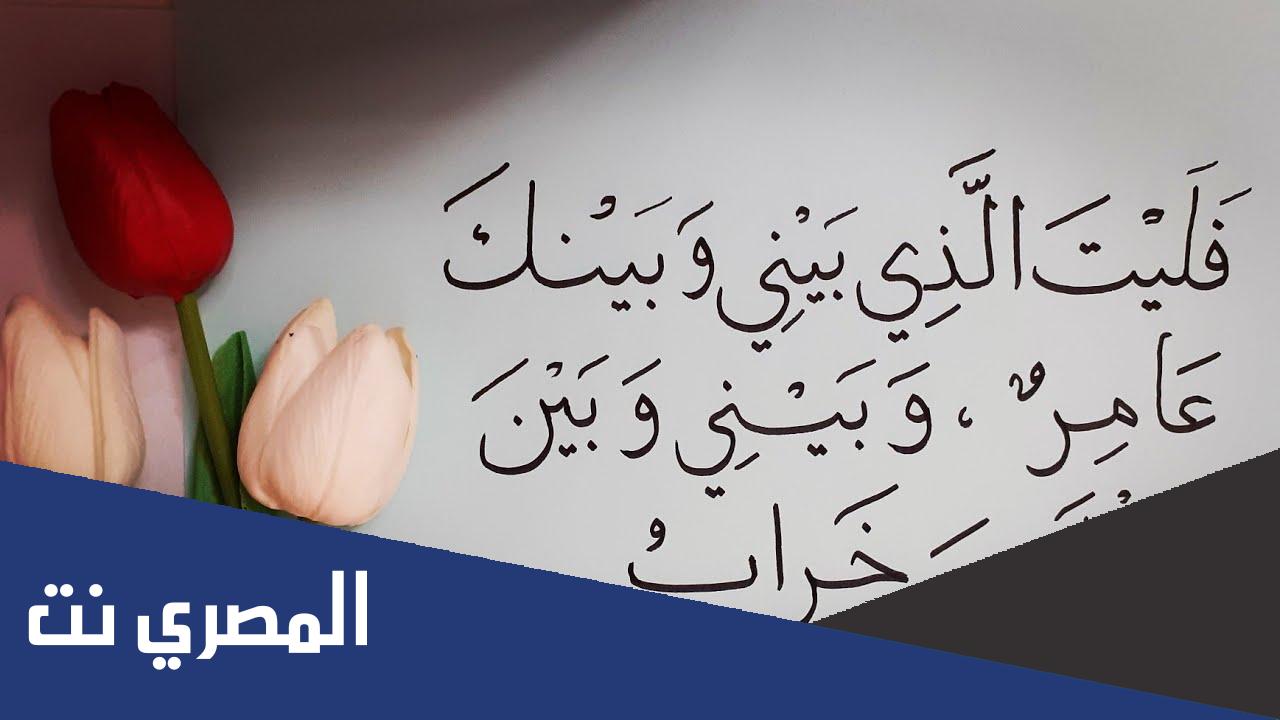 فَلَيْتَ الَّذِي بَيْنِي وَبَيْنكَ
عَامِرٌ ، وَبَيْنِي وَبَيْنَ
خَرابُ
المصري نت